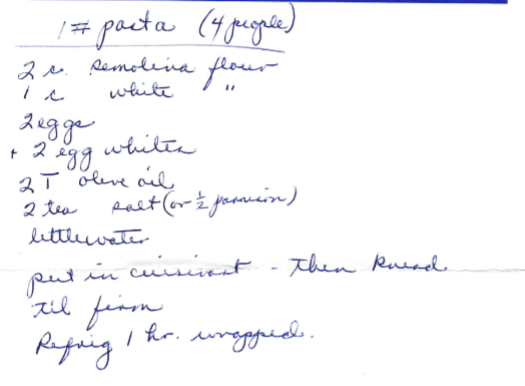 1# pasta (4 people)
2 c. semolina flour
1 c white "
2 eggs
+ 2 egg whites
2 T olive oil
2 tea salt (or ½
little water
put in cuisinart - then knead
til firm
Refrig 1 hr. wrapped.